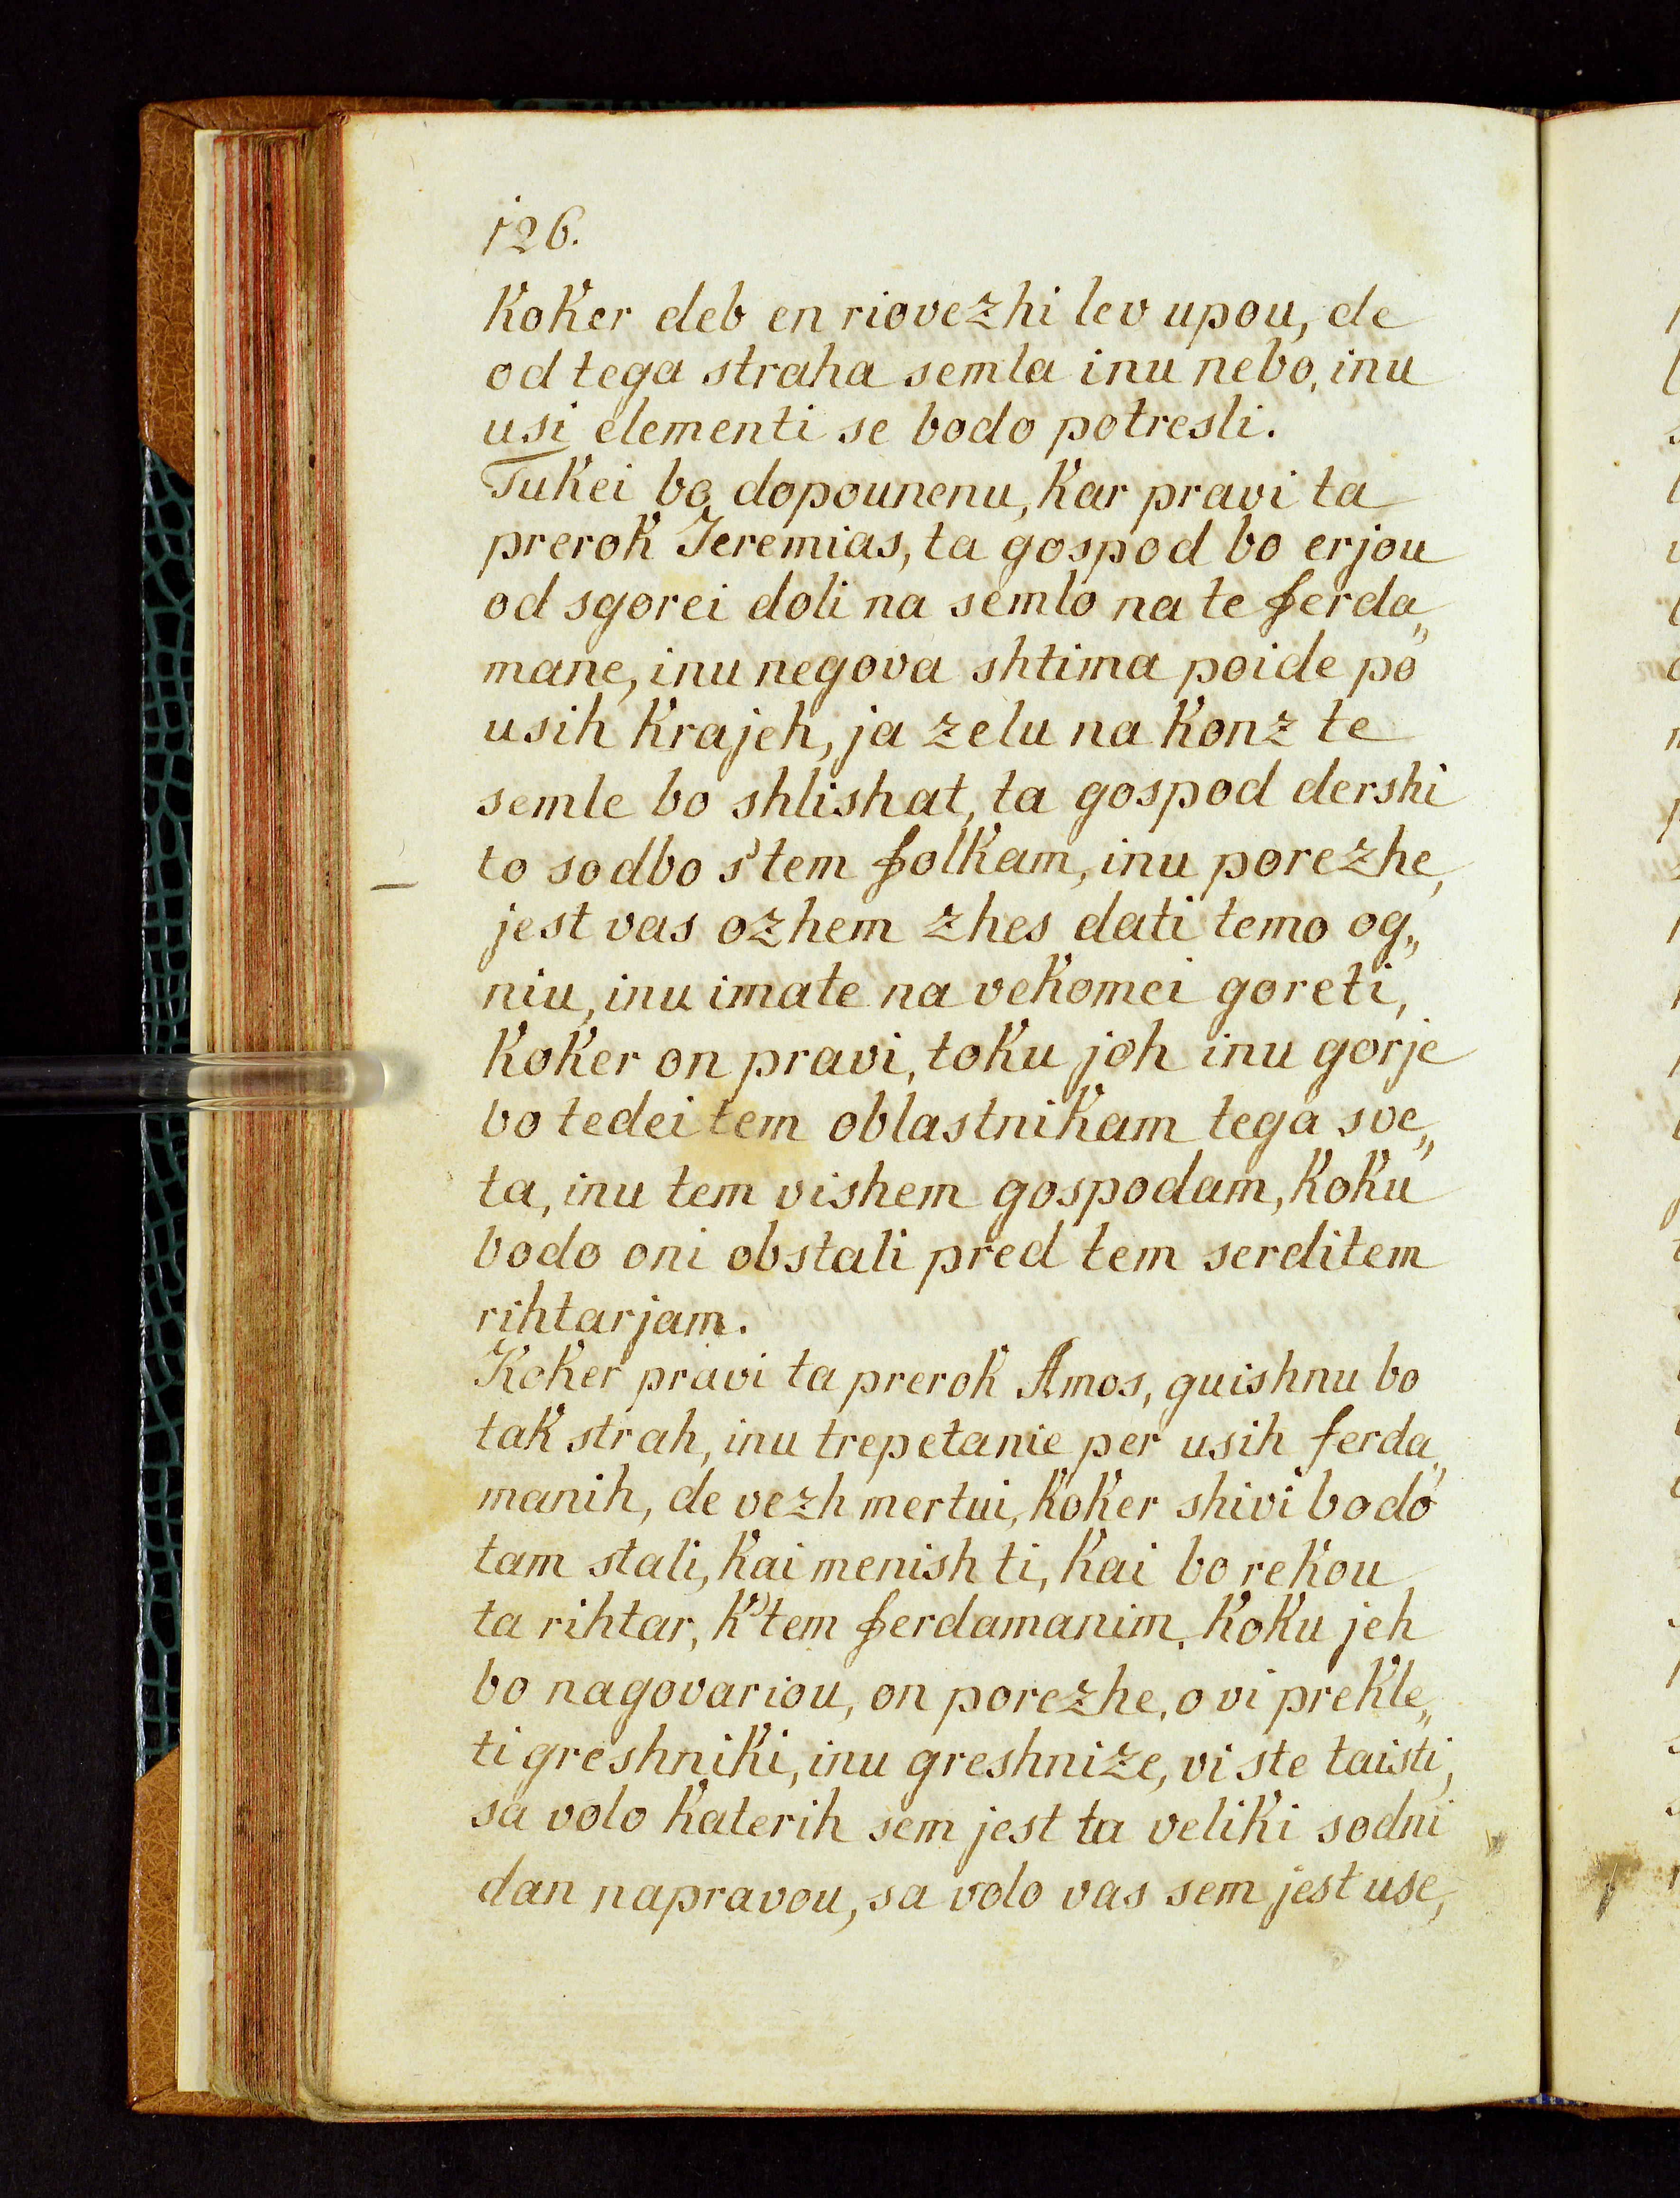 126.
koker deb en riovezhi lev upou, de
od tega straha semla inu nebo, inu
usi elementi se bodo potresli.
Tukei bo dopounenu, kar pravi ta
prerok Jeremias, ta gospod bo erjou
od sgorei doli na semlo na te ferda„
mane, inu negova shtima poide po
usih krajeh, ja zelu na konz te
semle bo shlishat, ta gospod dershi
to sodbo s'tem folkam, inu porezhe,
jest vas ozhem zhes dati temo og„
niu, inu imate na vekomei goreti,
koker on pravi, toku joh inu gorje
bo tedei tem oblastnikam tega sve„
ta, inu tem vishem gospodam, koku
bodo oni obstali pred tem serditem
rihtarjam.
Koker pravi ta prerok Amos, guishnu bo
tak strah, inu trepetanie per usih ferda„
manih, de vezh mertui, koker shivi bodo
tam stali, kai menish ti, kai bo rekou
ta rihtar, k'tem ferdamanim, koku jeh
bo nagovariou, on porezhe, o vi prekle„
ti greshniki, inu greshnize, vi ste taisti,
sa volo katerih sem jest ta veliki sodni
dan napravou, sa volo vas sem jest use,